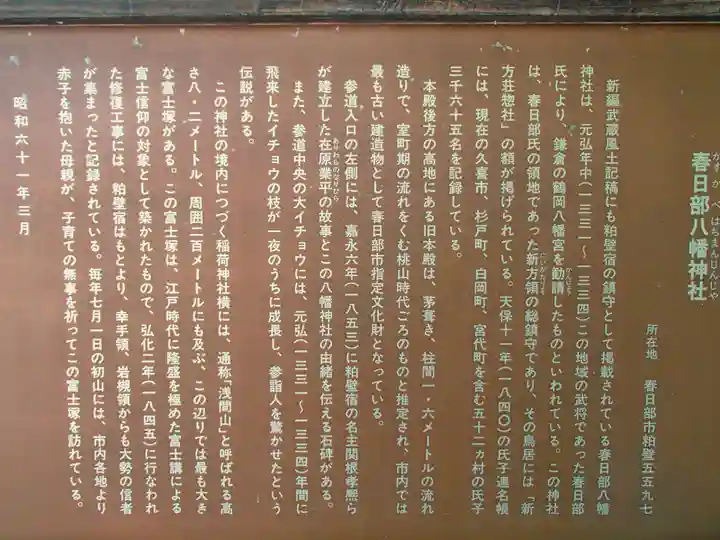 春日部八幡神社
かすかべはちまんじんじゃ
所在地　春日部市粕壁五五九七
新編武蔵風土記稿にも粕壁宿の鎮守として掲載されている春日部八幡
神社は、元弘年中(一三三一〜一三三四)この地域の武将であった春日部
氏により、鎌倉の鶴岡八幡宮を勧請したものといわれている。この神社
かんじょう
は、春日部氏の領地であった新方領の総鎮守であり、その鳥居には「新
にいがたりょう
方荘惣社」の額が掲げられている。天保十一年(一八四〇)の氏子連名帳
には、現在の久喜市、杉戸町、白岡町、宮代町を含む五十二ヵ村の氏子
三千六十五名を記録している。
本殿後方の高地にある旧本殿は、茅葺き、柱間一・六メートルの流れ
造りで、室町期の流れをくむ桃山時代ごろのものと推定され、市内では
最も古い建造物として春日部市指定文化財となっている。
参道入口の左側には、嘉永六年(一八五三)に粕壁宿の名主関根孝熙ら
が建立した在原業平の故事とこの八幡神社の由緒を伝える石碑がある。
ありわらのなりひら
また、参道中央の大イチョウには、元弘(一三三一〜一三三四)年間に
飛来したイチョウの枝が一夜のうちに成長し、参詣人を驚かせたという
伝説がある。
この神社の境内につづく稲荷神社横には、通称「浅間山」と呼ばれる高
さ八・二メートル、周囲二百メートルにも及ぶ、この辺りでは最も大き
な富士塚がある。この富士塚は、江戸時代に隆盛を極めた富士講による
富士信仰の対象として築かれたもので、弘化二年(一八四五)に行なわれ
た修復工事には、粕壁宿はもとより、幸手領、岩槻領からも大勢の信者
が集まったと記録されている。毎年七月一日の初山には、市内各地より
赤子を抱いた母親が、子育ての無事を祈ってこの富士塚を訪れている。
昭和六十一年三月